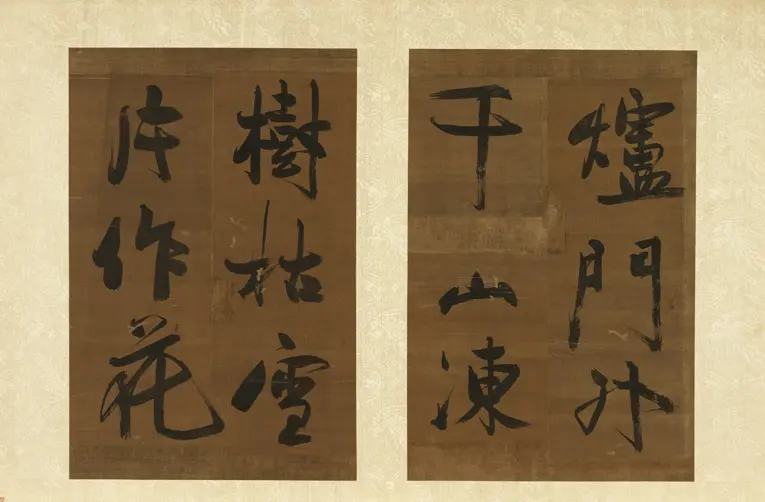 爐門外
千山凍
樹枯雪
片作花